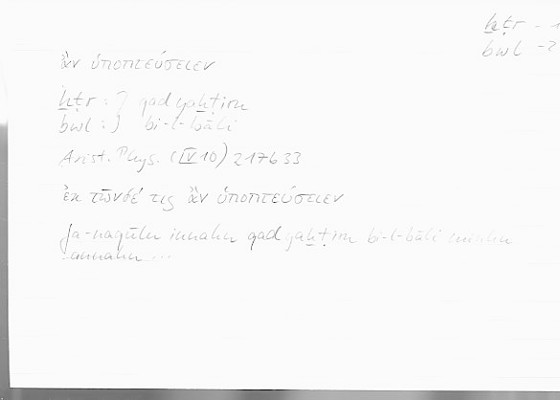 ḫṭr - 1
bwl - 2
ἂν ὑποπτεύσειεν
ḫṭr : } qad yaḫṭiru
bwl : } bi-l-bāli
Arist. Phys. (IV 10) 217b33
ἐκ τῶνδέ τις ἂν ὑποπτεύσειεν
fa-naqūlu innahu qad yaḫṭiru bi-l-bāli minhu
annahu ...